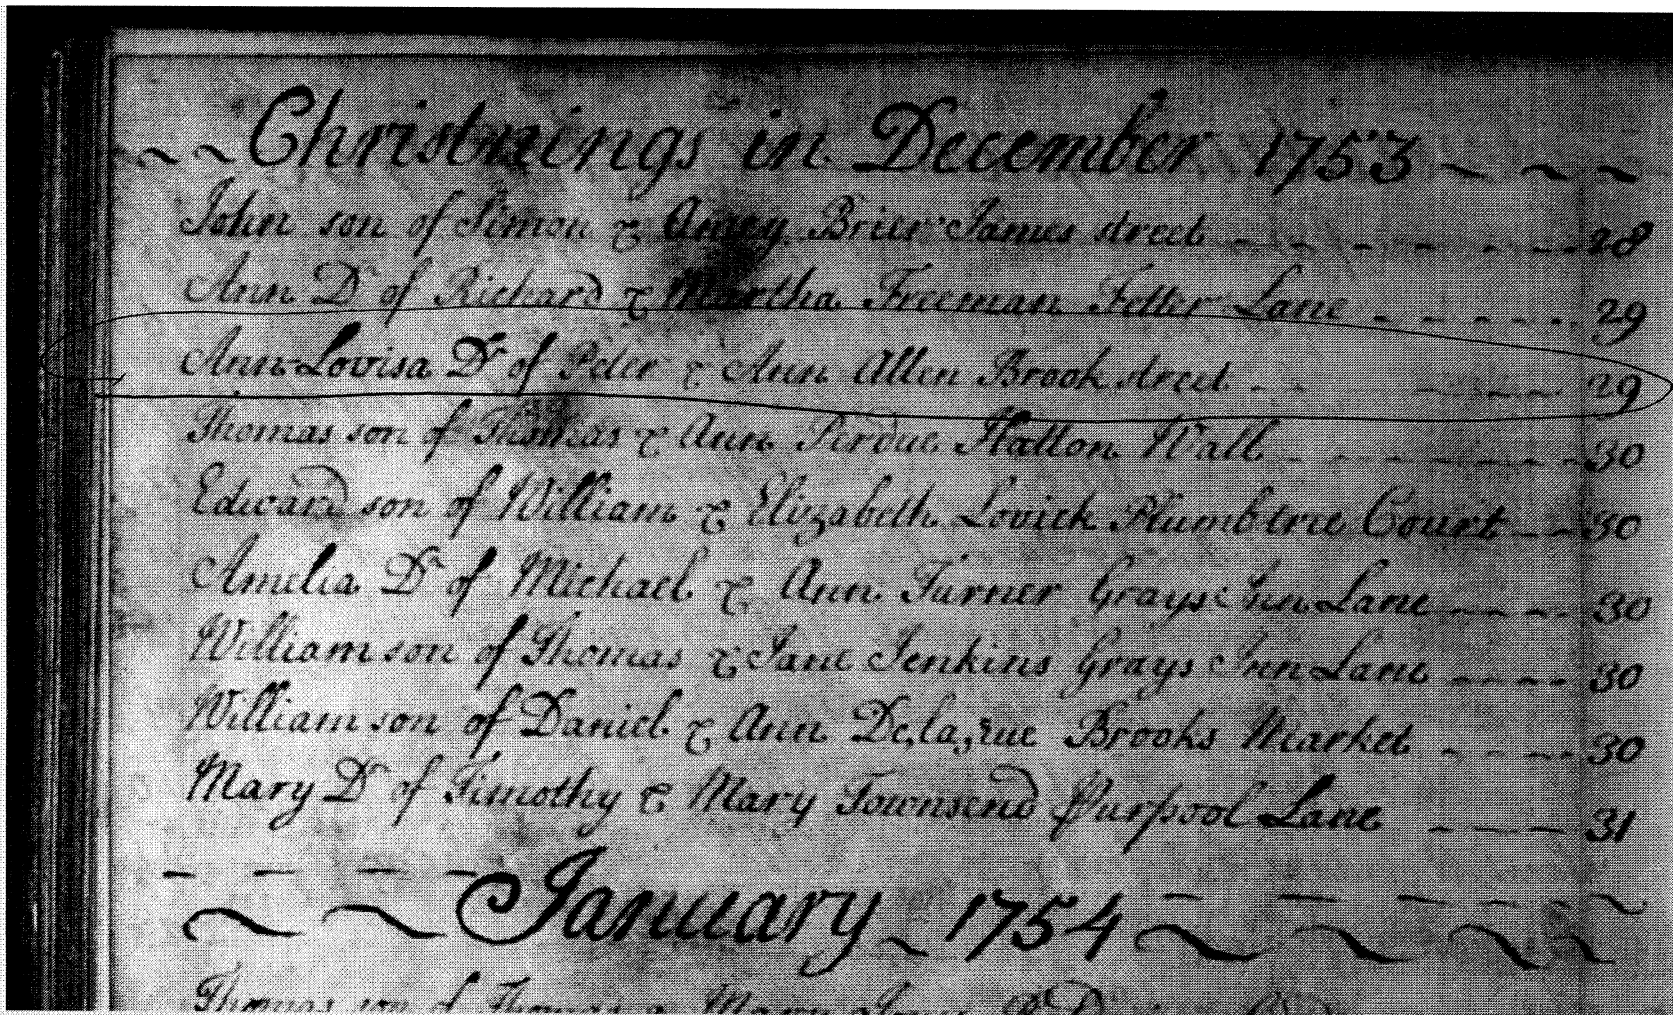 ~ ~ Christnings in December 1753 ~ ~ ~
John son of Simon & Amey Brier James street - - - - - - 28
Ann Dr of Richard & Martha Freeman Fetter Lane - - - - - 29
Ann-Lovisa Dr of Peter & Ann Allen Brook street - - - - - 29
Thomas son of Thomas & Ann Perdue Hatton Wall - - - - - - 30
Edward son of William & Elizabeth Lovick Plumbtree Court - - 30
Amelia Dr of Michael & Ann Turner Grays Inn Lane - - - - 30
William son of Thomas & Jane Jenkins Grays Inn Lane - - - - 30
William son of Daniel & Ann De,la,rue Brooks Market - - - - 30
Mary Dr of Timothy & Mary Townsend Purpool Lane - - - 31
January 1754
Thomas son of Thomas & Mary